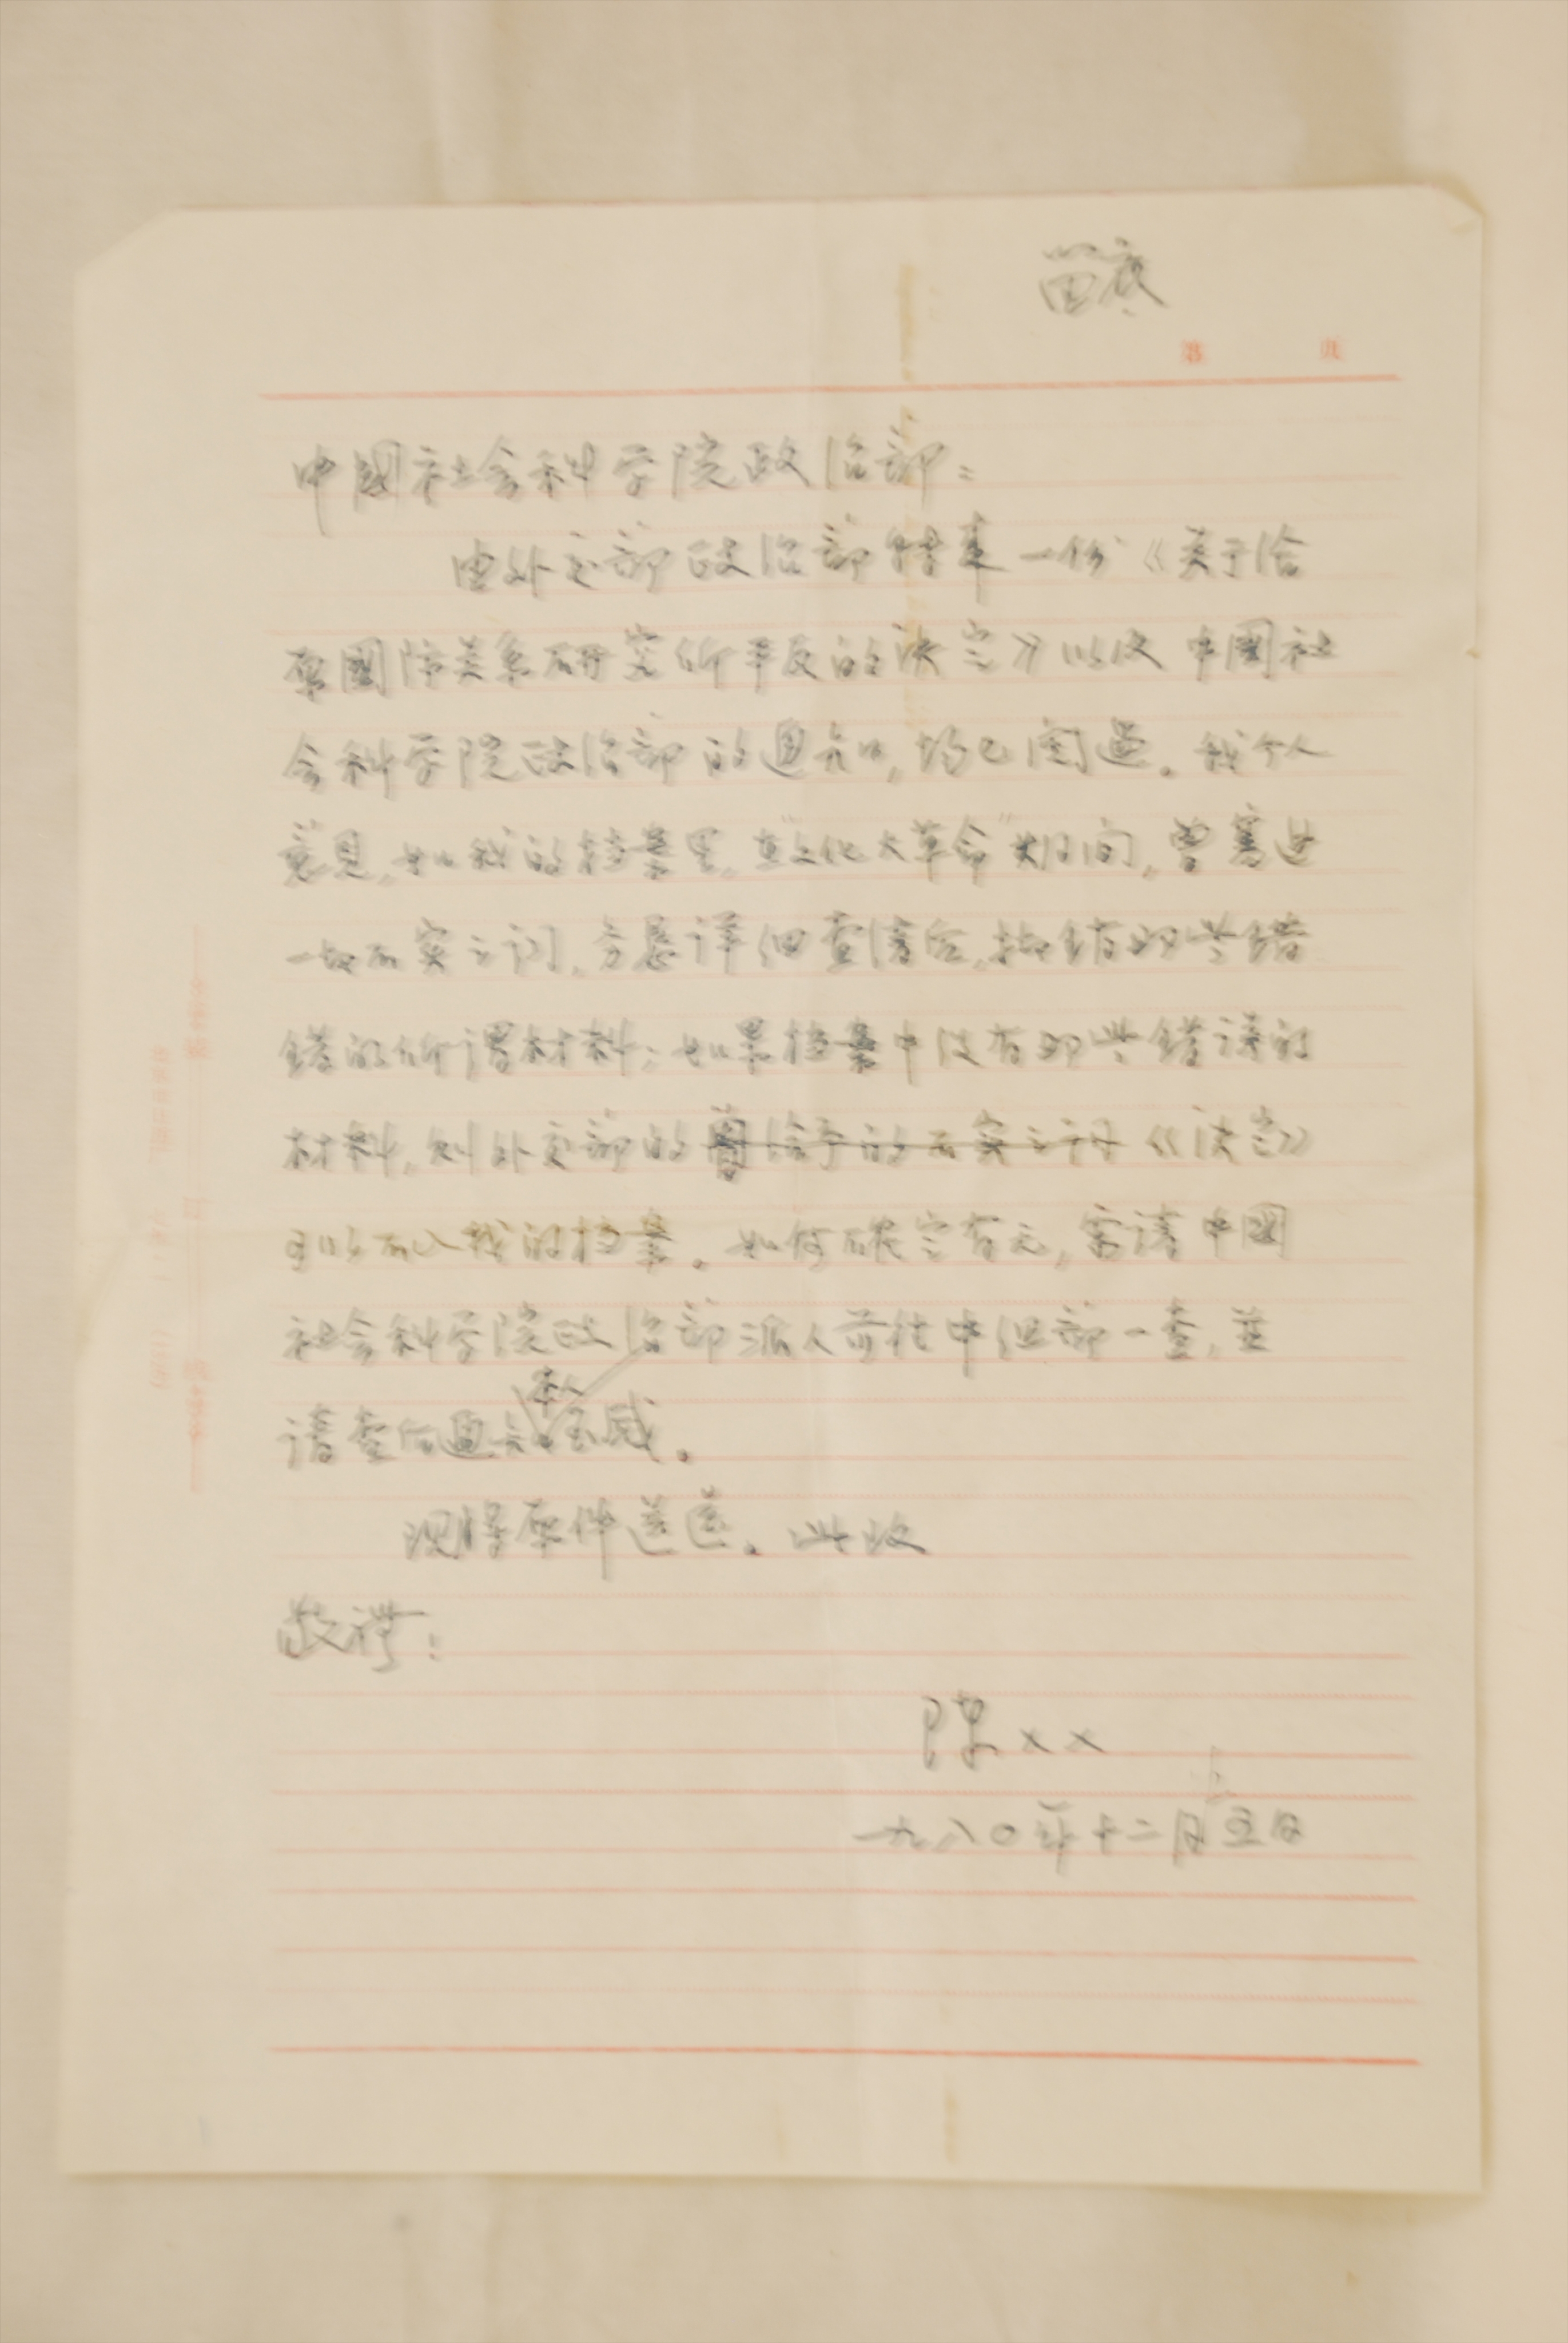 留底
第 页
中國社会科学院政治部：
由外交部政治部转来一份《关于给
原國际关系研究所平反的决定》以及中國社
会科学院政治部的通知，均已阅过。我个人
意见，如我的档案里，在"文化大革命"期间，曾塞进
一些不实之词，方恳详细查清后，抽销那些错
错的所谓材料；如果档案中没有那些错误的
材料，则外交部的曾给予的不实之词《决定》
可以不入我的档案。如何确定有无，需请中國
社会科学院政治部派人前往中组部一查，并
请查后通知本人至感。
现将原件送还。此致
敬禮！
陈××
上
一九八〇年十二月五日